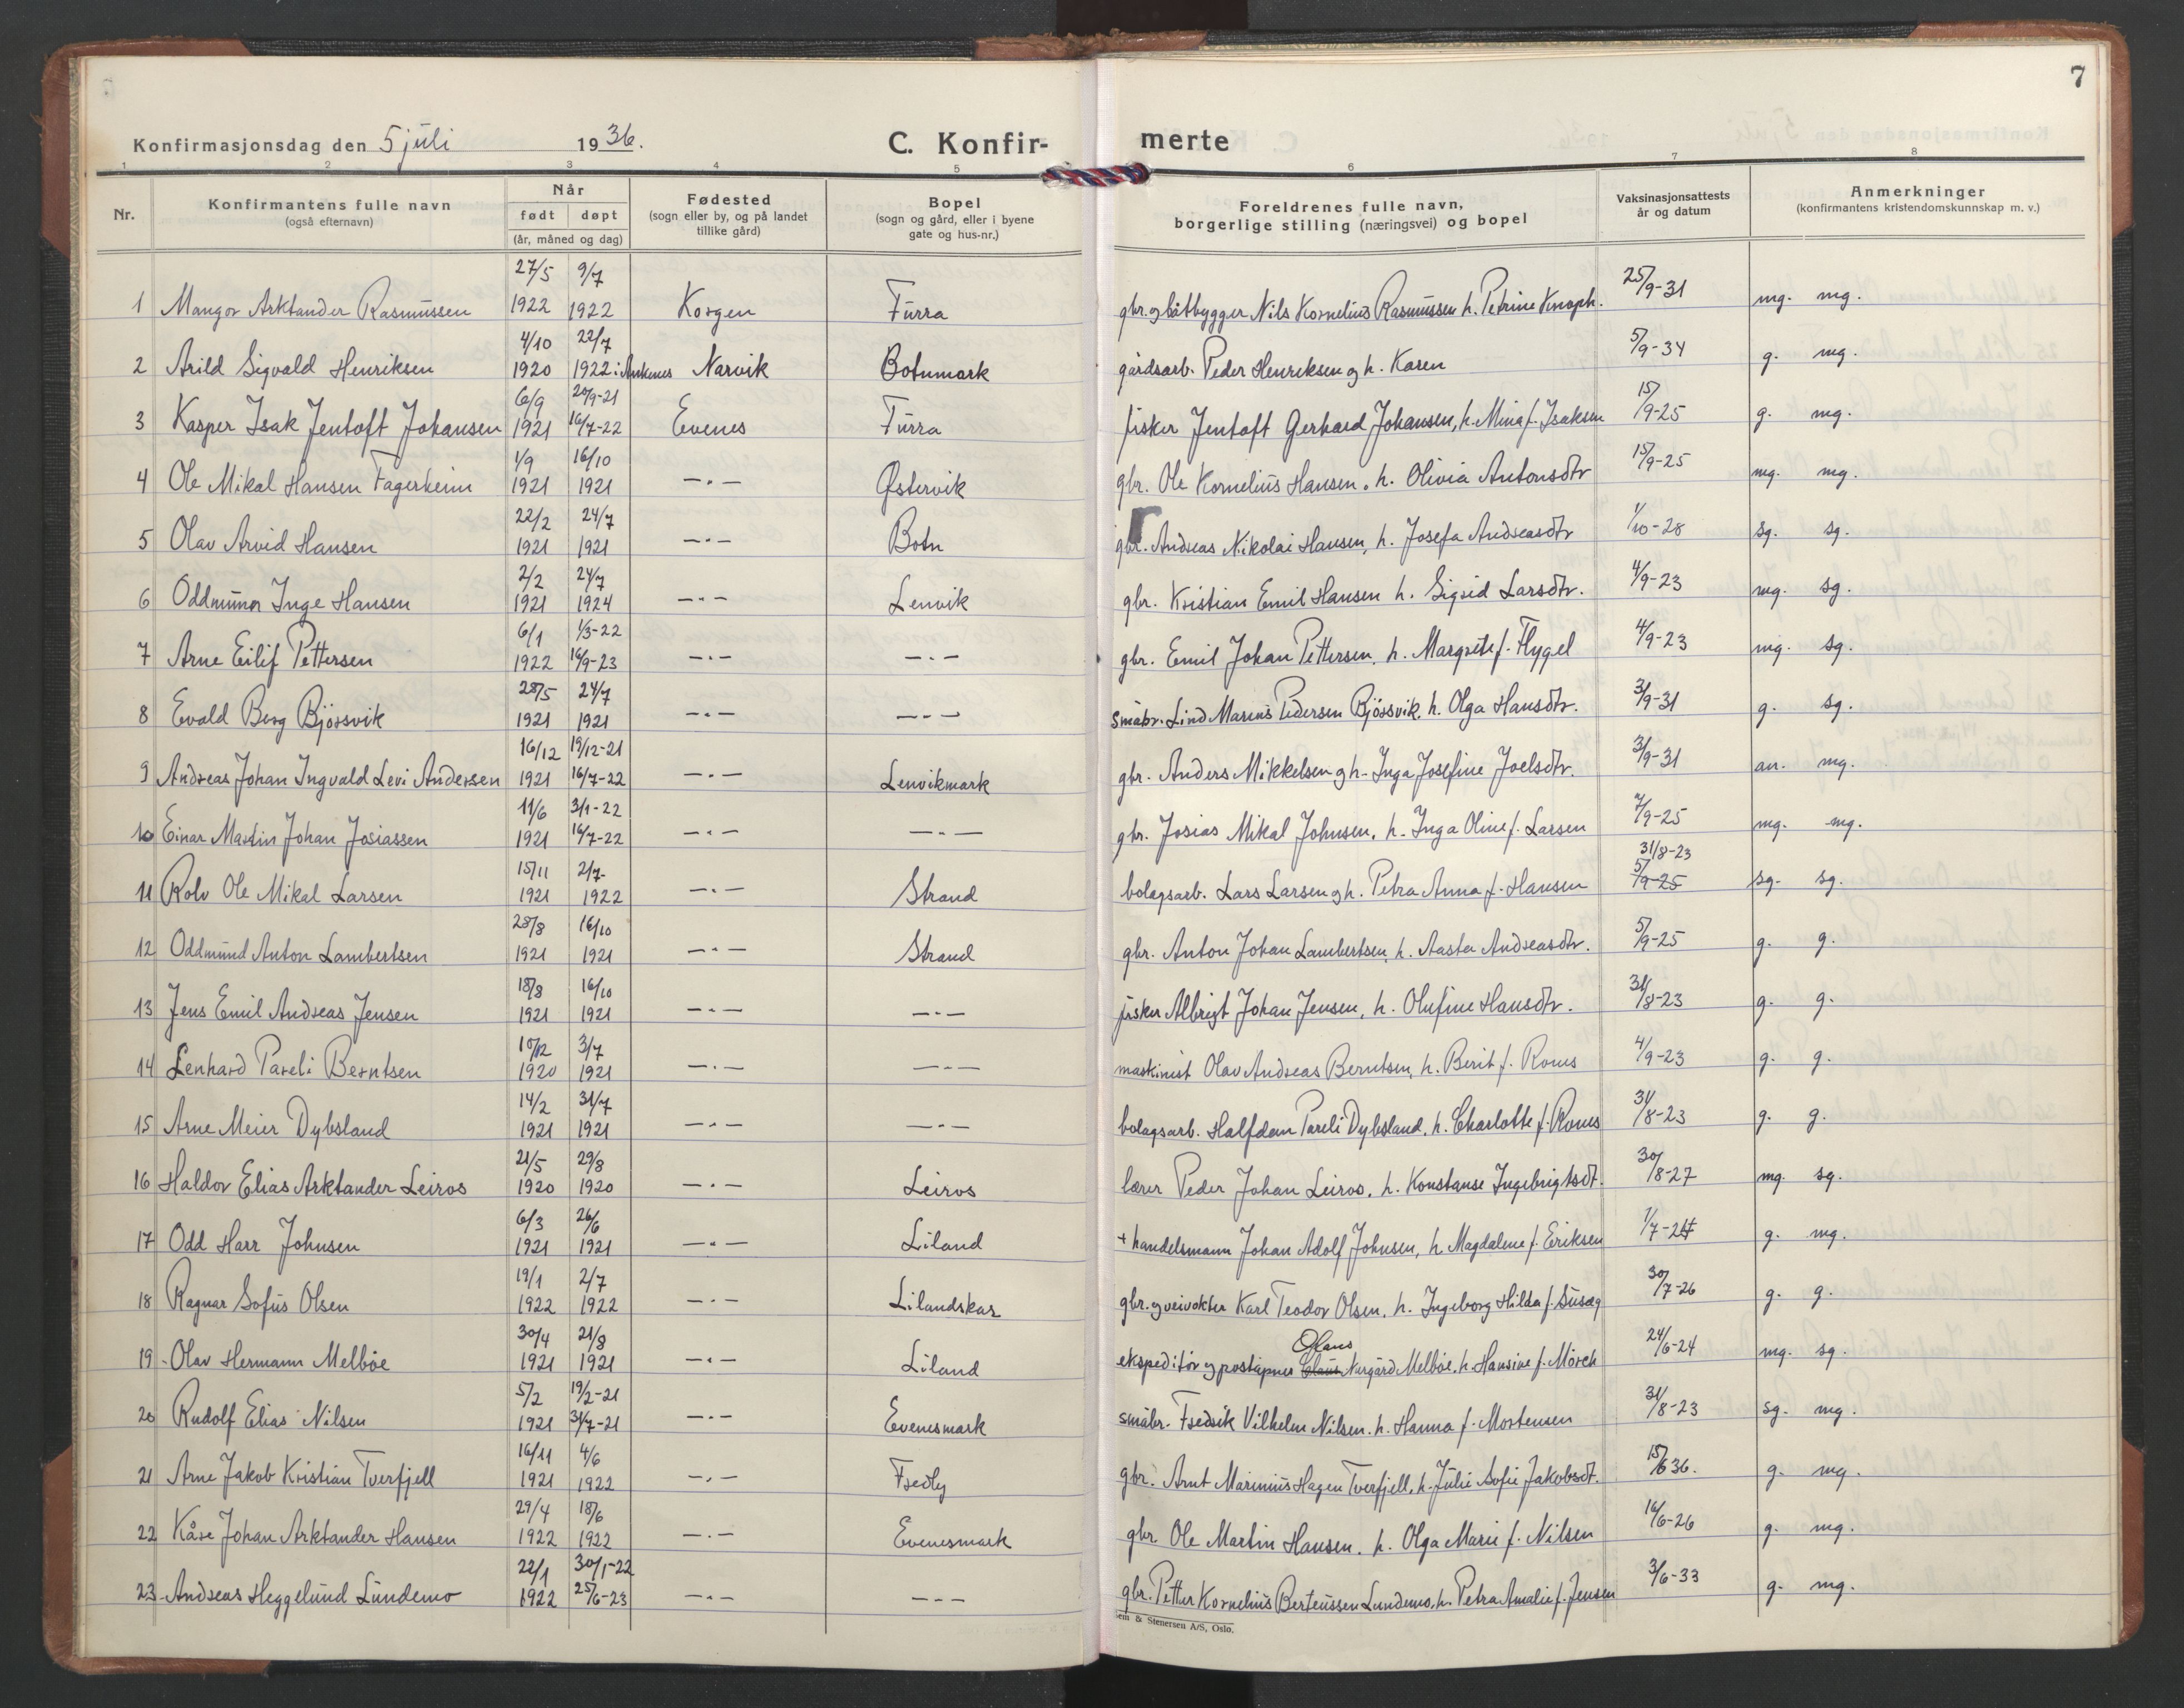 7
Konfirmasjonsdag den 5 juli 1936.
C. Konfir-
merte
1 2 3 4 5 6 7 8
Nr.
Konfirmantens fulle navn
(også efternavn)
Når
født døpt
(år, måned og dag)
Fødested
(sogn eller by, og på landet
tillike gård)
Bopel
(sogn og gård, eller i byene
gate og hus-nr.)
Foreldrenes fulle navn,
borgerlige stilling (næringsvei) og bopel
Vaksinasjonsattests
år og datum
Anmerkninger
(konfirmantens kristendomskunnskap m. v.)
27/5 9/7
1 Mangor Arktander Rasmussen 1922 1922 Korgen Furra gbr. og båtbygger Nils Kornelius Rasmussen h. Petrine Knoph. 25/9-31 mg. mg.
4/10 22/7
2 Arild Sigvald Henriksen 1920 1922 i Ankenes Narvik Botnmark gårdsarb. Peder Henriksen og h. Karen 5/9-34 g. mg.
6/9 20/9-21
3 Kasper Isak Jentoft Johansen 1921 16/7-22 Evenes Furra fisker Jentoft Gerhard Johansen, h. Mina f. Isaksen 15/9-25 g. mg.
1/9 16/10
4 Ole Mikal Hansen Fagerheim 1921 1921 -"- Østervik gbr. Ole Kornelius Hansen, h. Olivia Antonsdtr 15/9-25 mg. mg.
22/2 24/7
5 Olav Arvid Hansen 1921 1921 -"- Botn gbr. Andreas Nikolai Hansen, h. Josefa Andreasdtr 1/10-28 sg. sg.
2/2 24/7
6 Oddmunn Inge Hansen 1921 1924 -"- Lenvik gbr. Kristian Emil Hansen h. Sigrid Larsdtr. 4/9-23 mg. sg.
6/1 1/3-22
7 Arne Eilif Pettersen 1922 16/9-23 -"- -"- gbr. Emil Johan Pettersen, h. Margrete f. Flygel 4/9-23 mg. sg.
28/5 24/7
8 Evald Berg Bjørsvik 1921 1921 -"- -"- småbr. Lind Marius Pedersen Bjørsvik, h. Olga Hansdtr. 3/9-31 g. sg.
16/12 19/12-21
9 Andreas Johan Ingvald Levi Andersen 1921 16/7-22 -"- Lenvikmark gbr. Anders Mikkelsen og h. Inga Josefine Joelsdtr. 3/9-31 an. mg.
11/6 3/1-22
10 Einar Martin Johan Josiassen 1921 16/7-22 -"- -"- gbr. Josias Mikal Johnsen, h. Inga Oline f. Larsen 7/9-25 mg. mg.
15/11 2/7 31/8-23
11 Rolv Ole Mikal Larsen 1921 1922 -"- Strand bolagsarb. Lars Larsen og h. Petra Anna f. Hansen 5/9-25 sg. sg.
28/8 16/10
12 Oddmund Anton Lambertsen 1921 1921 -"- Strand gbr. Anton Johan Lambertsen, h. Aasta Andreasdtr. 5/9-25 g. g.
18/8 16/10
13 Jens Emil Andreas Jensen 1921 1921 -"- -"- fisker Albrigt Johan Jensen, h. Olufine Hansdtr. 31/8-23 g. g.
10/12 3/7
14 Lenhard Pareli Berntsen 1920 1921 -"- -"- maskinist Olav Andreas Berntsen, h. Berit f. Roms 4/9-23 g. g.
14/2 31/7
15 Arne Meier Dybsland 1921 1921 -"- -"- bolagsarb. Halfdan Pareli Dybsland, h. Charlotte f. Roms 31/8-23 g. g.
21/5 29/8
16 Haldor Elias Arktander Leiros 1920 1920 -"- Leiros lærer Peder Johan Leiros, h. Konstanse Ingebrigtsdt. 30/8-27 mg. sg.
6/3 26/6
17 Odd Harr Johnsen 1921 1921 -"- Liland + handelsmann Johan Adolf Johnsen, h. Magdalene f. Eriksen 1/7-24 g. mg.
19/1 2/7
18 Ragnar Sofus Olsen 1922 1922 -"- Lilandskar gbr. og veivokter Karl Teodor Olsen, h. Ingeborg Hilda f. Susæg 30/7-26 g. g.
30/4 21/8 Olaus
19 Olav Hermann Melbøe 1921 1921 -"- Liland ekspeditør og poståpner Claus Nergård Melbøe, h. Hansine f. Mørch 24/6-24 mg. sg.
5/2 19/2-21
20 Rudolf Elias Nilsen 1921 31/7-21 -"- Evenesmark småbr. Fredrik Vilhelm Nilsen, h. Hanna f. Mortensen 31/8-23 sg. mg.
16/11 4/6
21 Arne Jakob Kristian Tverfjell 1921 1922 -"- Fredly gbr. Arnt Marinius Hagen Tverfjell, h. Julie Sofie Jakobsdt. 15/6 36. g. mg.
29/4 18/6
22 Kåre Johan Arktander Hansen 1922 1922 -"- Evenesmark gbr Ole Martin Hansen, h. Olga Marie f. Nilsen 16/6-26 g. mg.
22/1 30/1-22
23 Andreas Heggelund Lundemo 1922 25/6-23 -"- -"- gbr. Petter Kornelius Berteussen Lundemo, h. Petra Amalie f. Jensen 3/6-33 g. mg.
Sem & Stenersen A/S, Oslo.